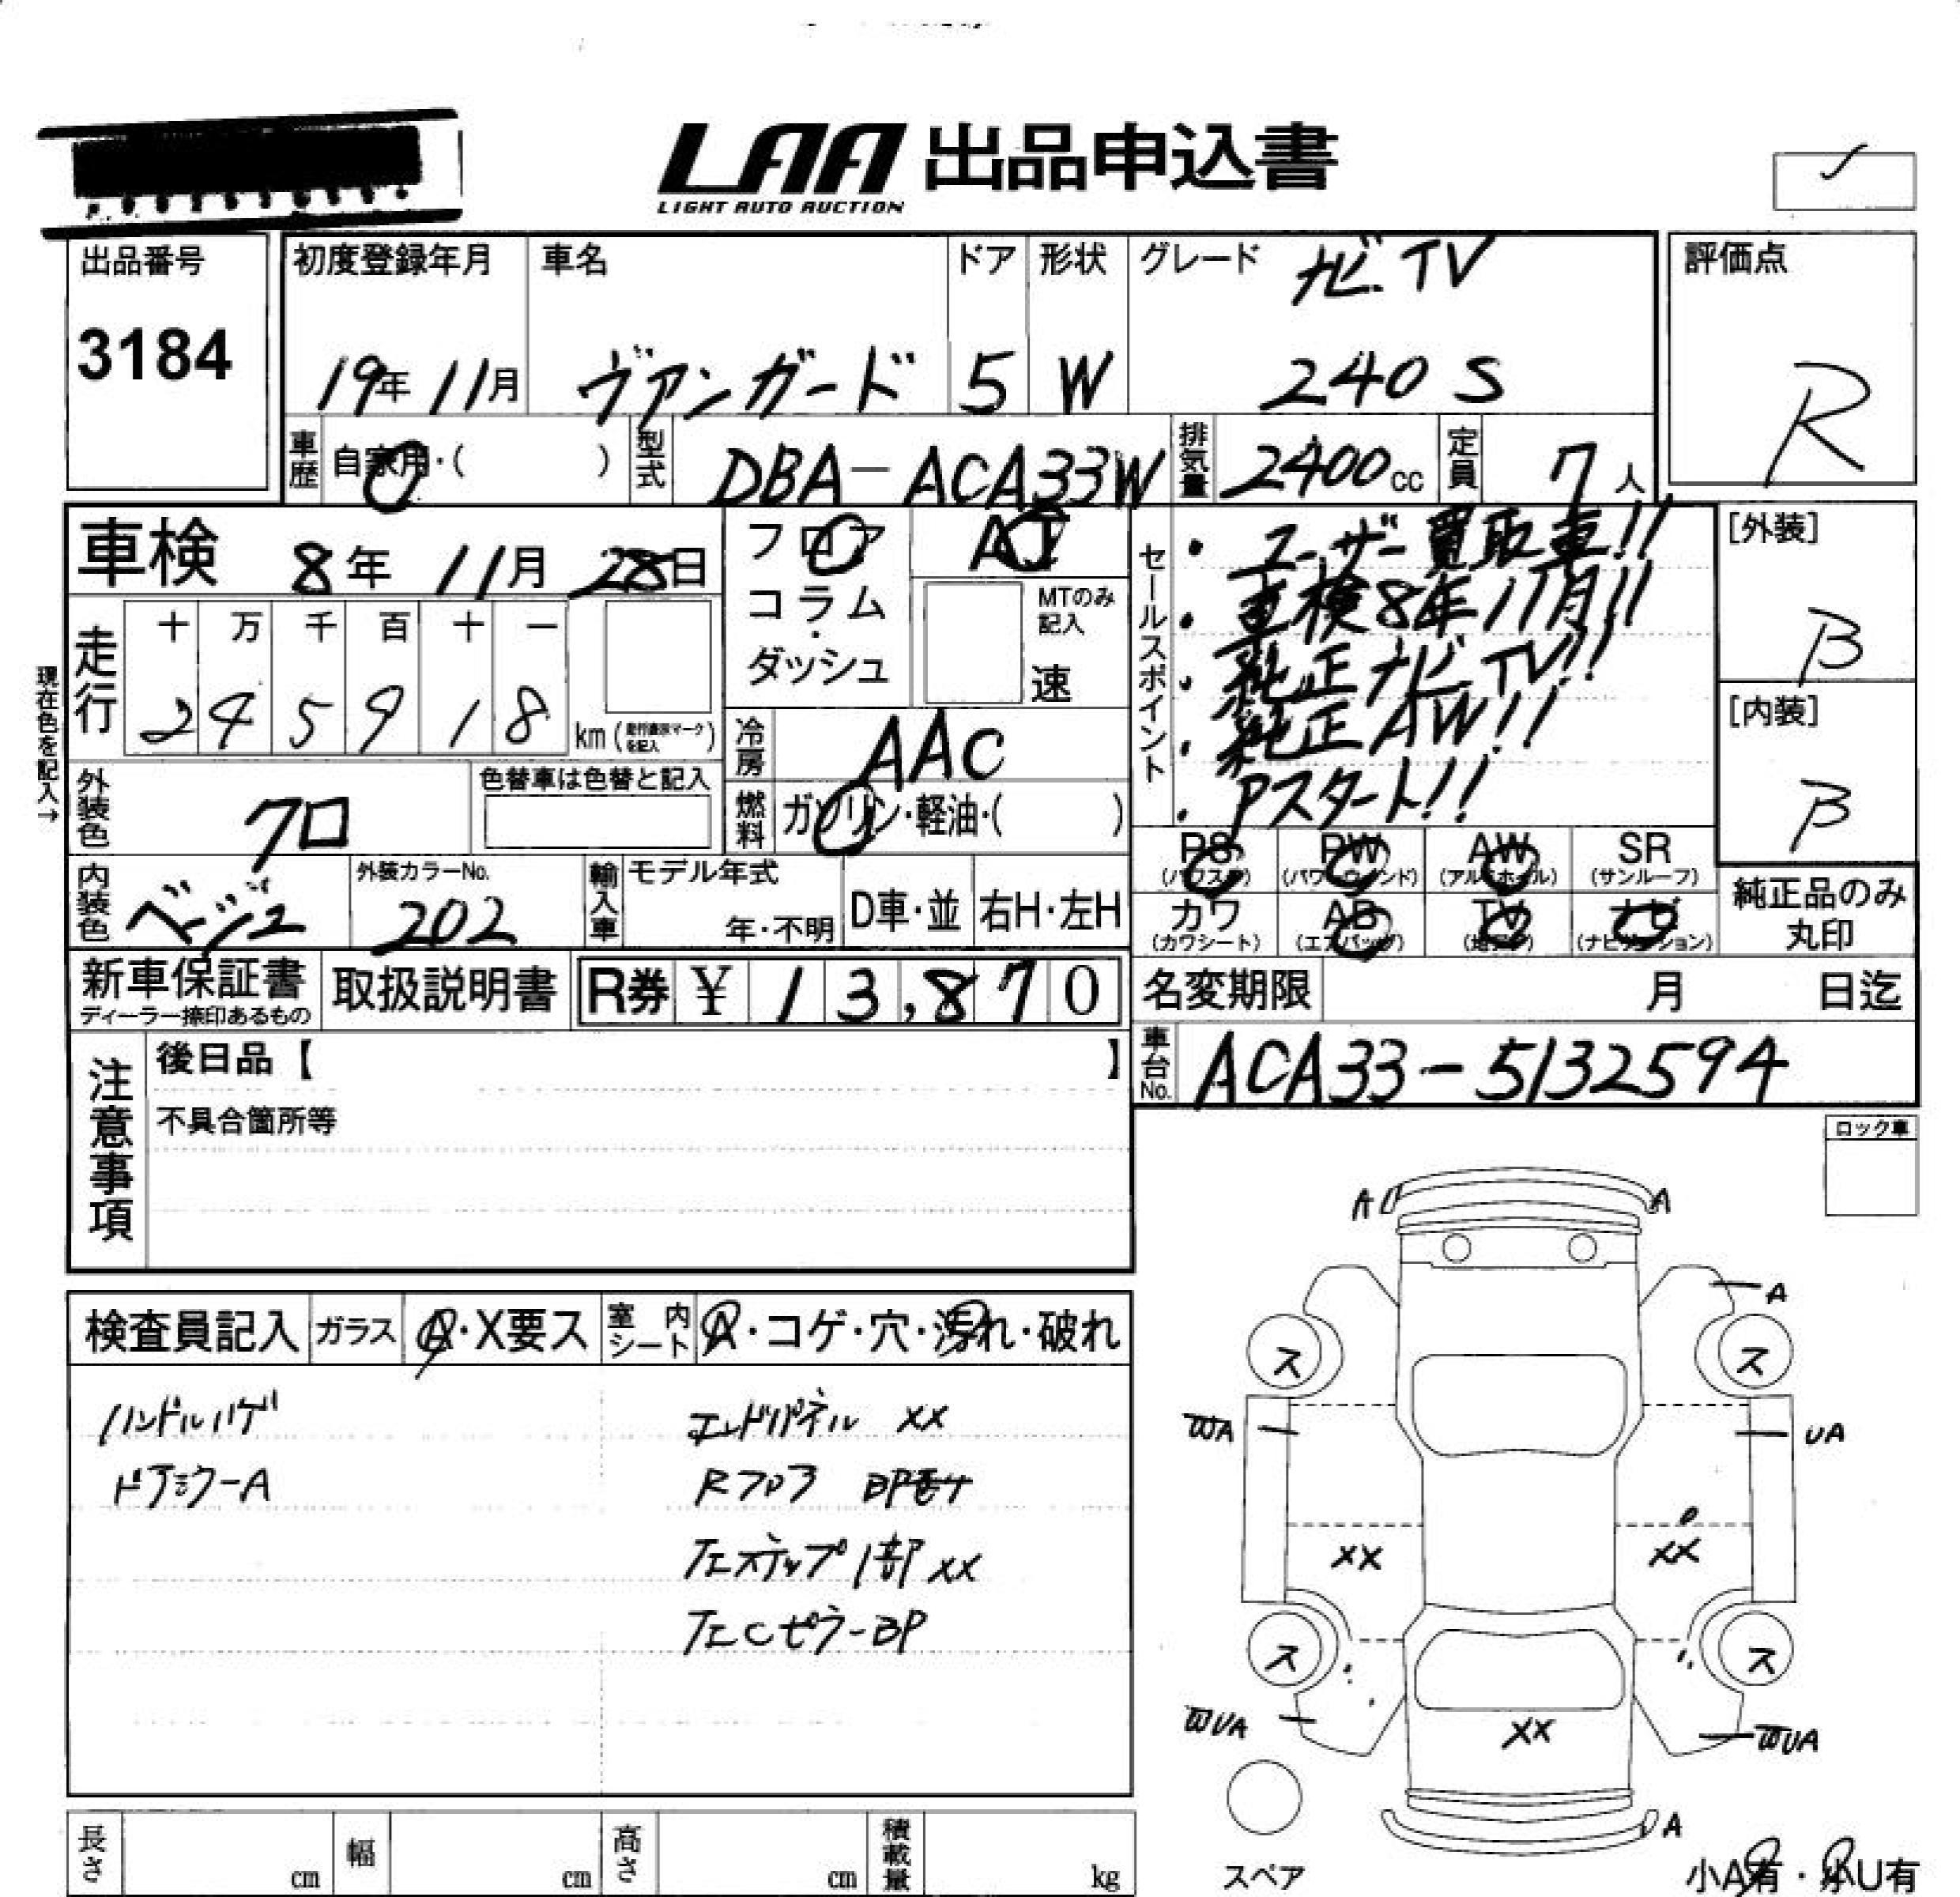 LAA 出品申込書
LIGHT AUTO AUCTION
出品番号
3184
初度登録年月
19年 11月
車名
ヴァンガード
ドア
5
形状
W
グレード ナビ TV
240 S
評価点
R
車歴 自家用・( )
型式 DBA-ACA33W
排気量 2400cc
定員 7人
車検 8年 11月 28日
走行
十 万 千 百 十 一
2 4 5 9 1 8
km (走行表示マークを記入)
現在色を記入→
フロア
コラム
・
ダッシュ
AT
MTのみ
記入
速
冷房 AAC
燃料 ガソリン・軽油・( )
外装色 クロ
色替車は色替と記入
内装色 ベージュ
外装カラーNo.
202
輸入車 モデル年式
年・不明
D車・並 右H・左H
セールスポイント
・ユーザー買取車!!
・車検8年11月!!
・純正ナビTV!!
・純正AW!!
・Pスタート!!
[外装]
B
[内装]
B
PS PW AW SR
(パワステ) (パワーウィンド) (アルミホイル) (サンルーフ)
カワ AB TV ナビ
(カワシート) (エアバッグ) (ナビゲーション)
純正品のみ
丸印
新車保証書
ディーラー捺印あるもの
取扱説明書
R券 ¥ 13,870
名変期限 月 日迄
車台No. ACA33-5132594
注意事項
後日品【 】
不具合箇所等
ロック車
検査員記入 ガラス A・X要ス 室内シート A・コゲ・穴・汚れ・破れ
ハンドルハゲ
ドアミラーA
エンドパネル XX
Rフロア BPモナ
左ステップ1部XX
左CピラーBP
A A
A
ス ス
WA UA
XX XX
ス ス
WUA XX WUA
A
スペア
小A有・小U有
長さ cm 幅 cm 高さ cm 積載量 kg